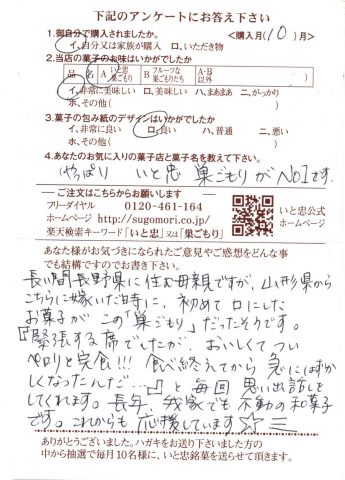 下記のアンケートにお答え下さい
1.御自分で購入されましたか。 <購入月(10)月>
イ、自分又は家族が購入 ロ、いただき物
2.当店の菓子のお味はいかがでしたか
品名 A いと忠巣ごもり B フルーツな巣ごもりたち A・B以外
イ、非常に美味しい ロ、美味しい ハ、まあまあ ニ、がっかり
ホ、その他( )
3.菓子の包み紙のデザインはいかがでしたか
イ、非常に良い ロ、良い ハ、普通 ニ、悪い
ホ、その他( )
4.あなたのお気に入りの菓子店と菓子名を教えて下さい。
やっぱり いと忠 巣ごもりがNo1です。
ご注文はこちらからお願いします
フリーダイヤル 0120-461-164
ホームページ http://sugomori.co.jp/
楽天検索キーワード「いと忠」又は「巣ごもり」
いと忠公式
ホームページ
あなた様がお気づきになられたご意見やご感想をどんな事
でも結構ですのでお書き下さい。
長い間長野県に住む母親ですが、山形県から
こちらに嫁いだ時に、初めて口にした
お菓子がこの「巣ごもり」だったそうです。
『緊張する席でしたが、おいしくてつい
ペロリと完食!!! 食べ終えてから急にはずか
しくなったんだ…』と毎回思い出話を
してくれます。長年、我家でも不動の和菓子
です。これからも応援しています☆彡
ありがとうございました。ハガキをお送り下さいました方の
中から抽選で毎月10名様に、いと忠銘菓を送らせて頂きます。